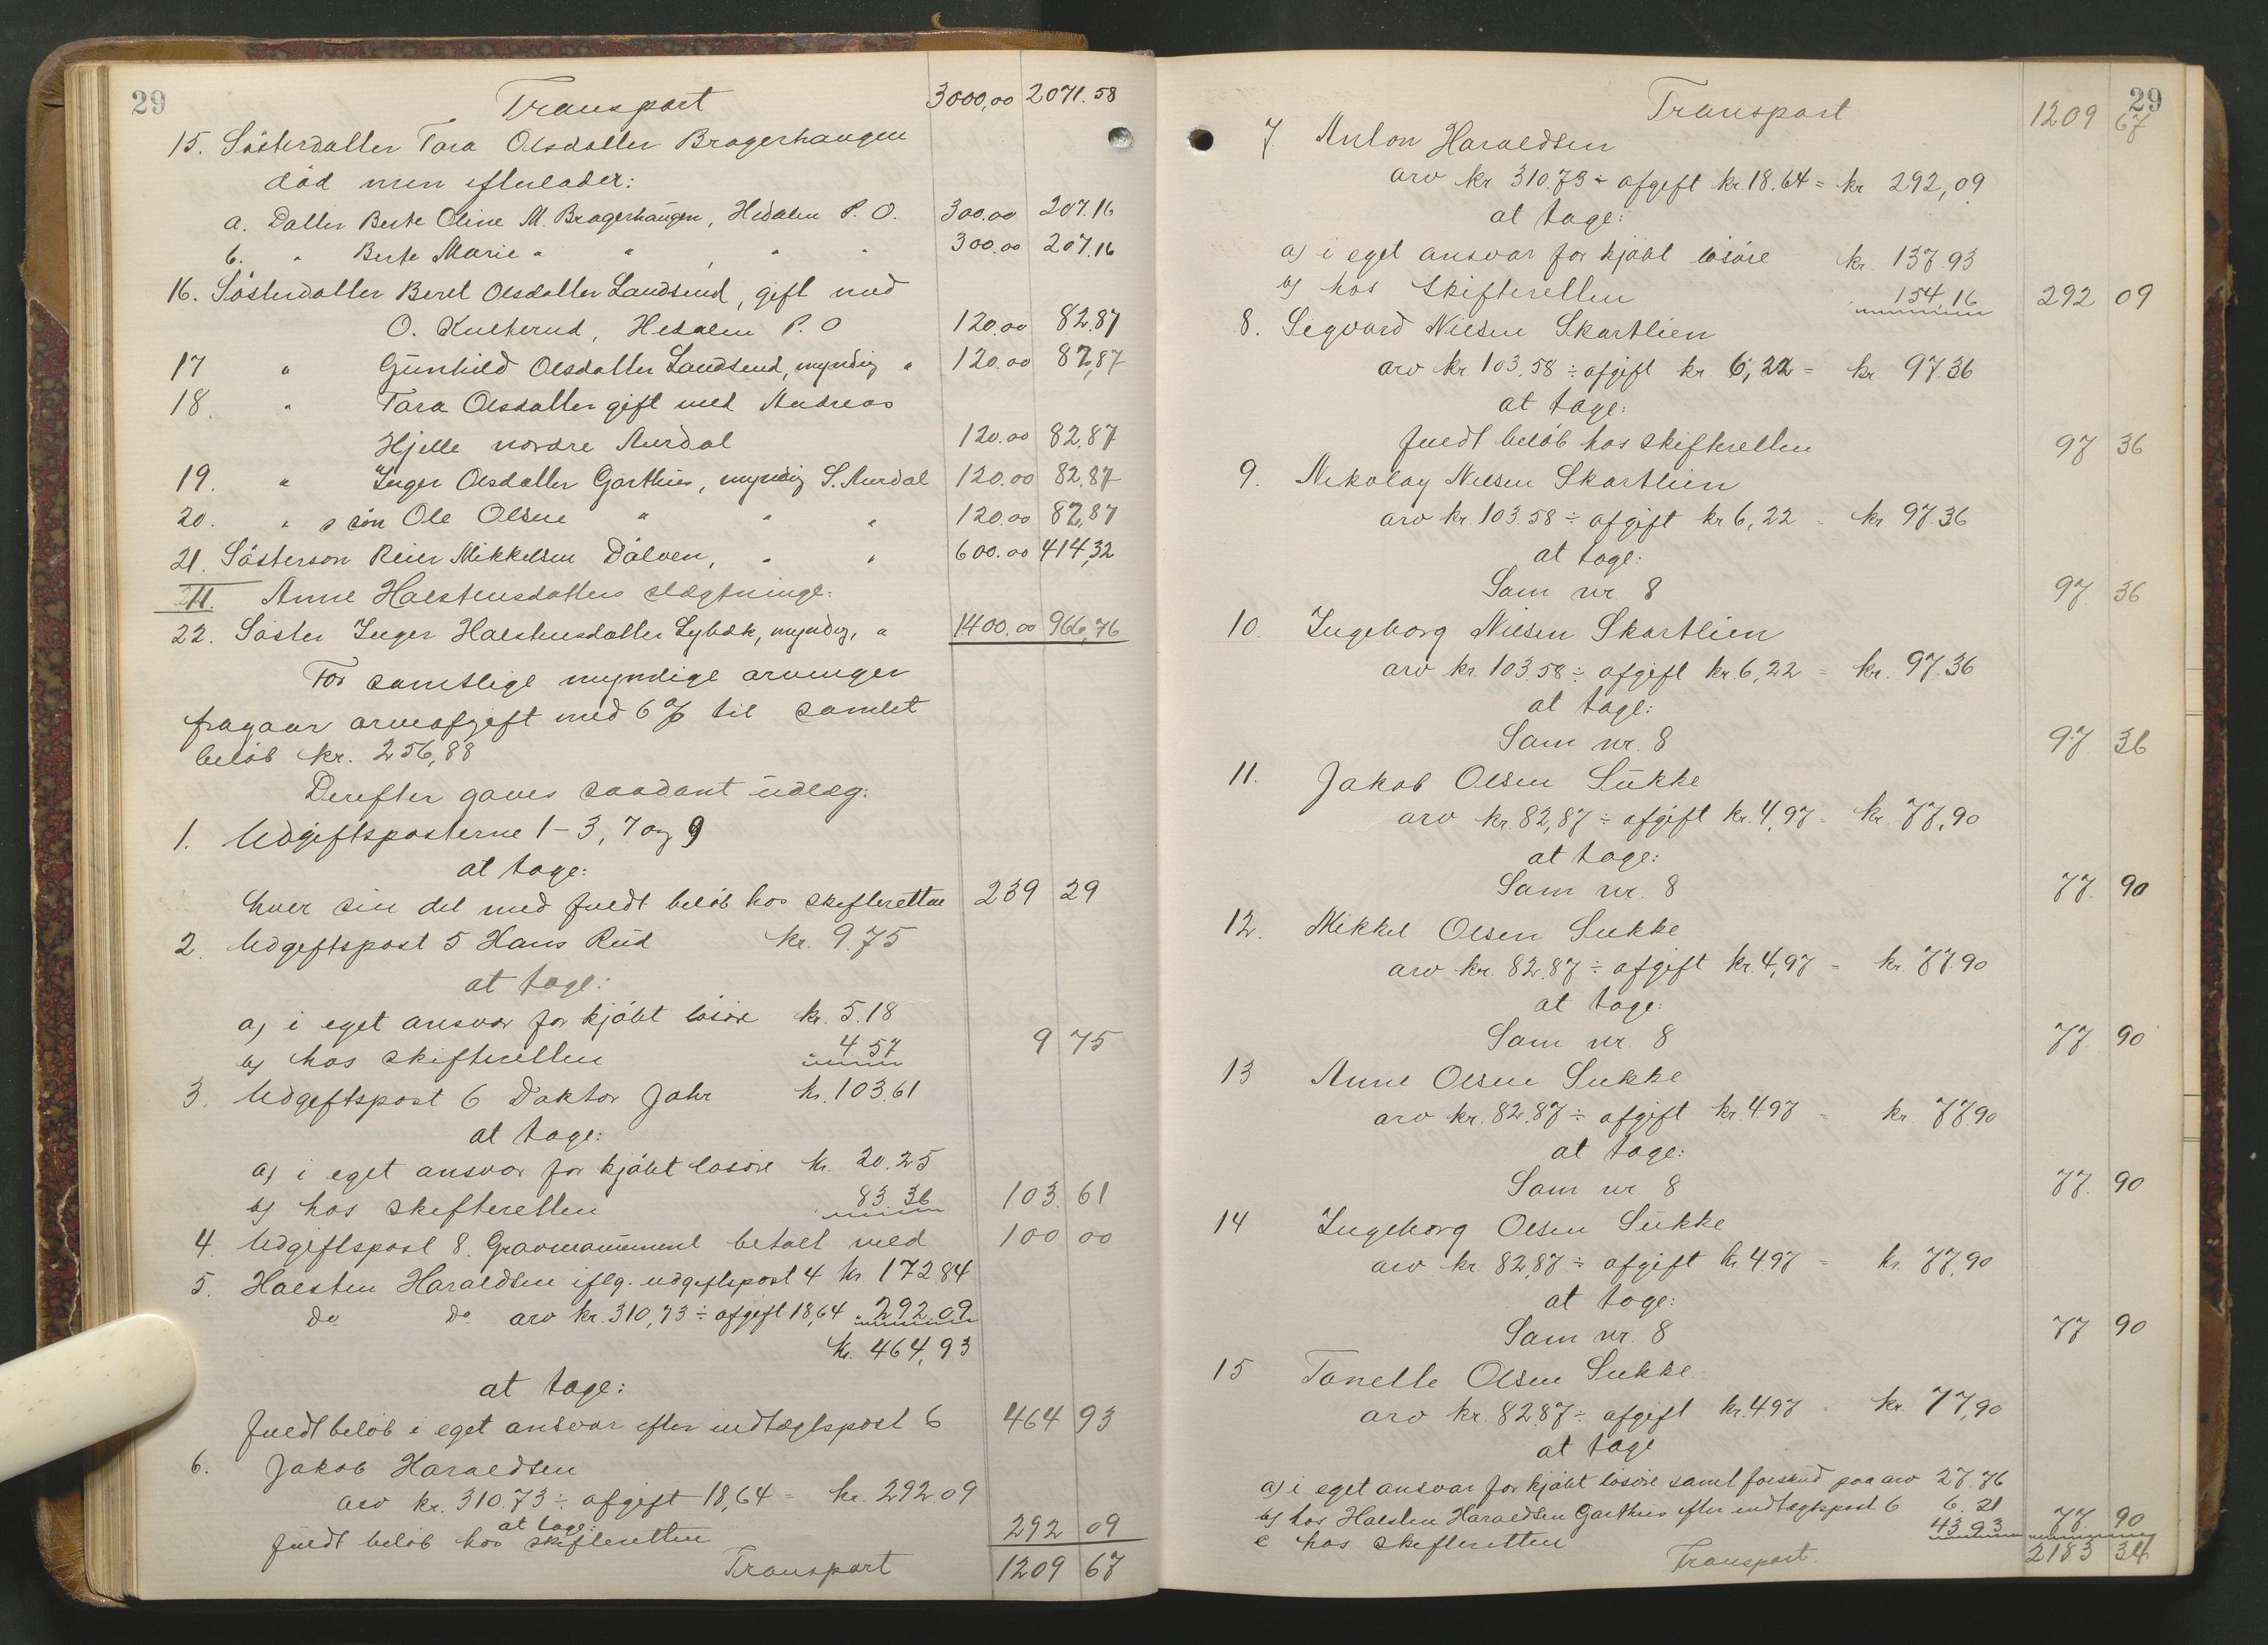 29 Transport 3000,00 2071.58
15. Søsterdatter Tora Olsdatter Bragerhaugen
död men efterlader:
a. Datter Berte Oline M. Bragerhaugen, Hedalen P. O. 300.00 207.16
b. " Berte Marie " " , " " 300.00 207.16
16. Søsterdatter Beret Olsdatter Landsend, gift med
O. Kulterud, Hedalen P. O 120.00 82.87
17 " Gunhild Olsdatter Landsend, myndig " 120.00 82,87
18. " Tora Olsdatter gift med Andreas
Hjelle nordre Aurdal 120.00 82,87
19. " Inger Olsdatter Garthus, myndig S. Aurdal 120.00 82,87
20. " s sön Ole Olsen " " " 120.00 82,87
21. Søsterson Reier Mikkelsen Dölven, " " 600.00 414,32
II. Anne Halstensdatters slægtninge:
22. Søster Inger Halstensdatter Lybæk, myndig, " 1400.00 966,76
For samtlige myndige arvinger
fragaar arveafgift med 6 % til samlet
beløb kr. 256,88
Derefter gaves saadant udlæg:
1. Udgiftsposterne 1-3, 7 og 9
at tage:
hver sin del med fuldt beløb hos skifteretten 239 29
2. Udgiftspost 5 Hans Rud kr. 9.75
at tage:
a) i eget ansvar for kjøbt løsøre kr. 5.18
b) hos skifteretten " 4 57 9 75
3. Udgiftspost 6 Doktor Jahr kr. 103.61
at tage:
a) i eget ansvar for kjøbt løsøre kr. 20.25
b) hos skifteretten " 83.36 103. 61
4. Udgiftspost 8. Gravmonument betalt med 100 00
5. Halsten Haraldsen iflg. udgiftspost 4 kr. 172 84
do do arv kr. 310,73 ÷ afgift 18,64 " 292.09
kr. 464,93
at tage:
fuldt beløb i eget ansvar efter indtægtspost 6 464 93
6. Jakob Haraldsen
arv kr. 310.73 ÷ afgift 18,64 = kr. 292.09
at tage:
fuldt beløb hos skifteretten 292 09
Transport 1209 67
29
Transport 1209 67
7. Anton Haraldsen
arv kr 310.73 ÷ afgift kr. 18.64 = kr 292,09
at tage:
a) i eget ansvar for kjøbt løsøre kr. 137.93
b) hos skifteretten " 154.16 292 09
8. Sigvard Nilsen Skartlien
arv kr. 103.58 ÷ afgift kr. 6,22 = kr 97.36
at tage:
fuldt beløb hos skifteretten 97 36
9. Nikolay Nilsen Skartlien
arv kr. 103.58 ÷ afgift kr. 6,22 = kr. 97.36
at tage:
Som nr. 8 97. 36
10. Ingeborg Nilsen Skartlien
arv kr. 103.58 ÷ afgift kr. 6,22 = kr. 97.36
at tage:
Som nr. 8 97. 36
11. Jakob Olsen Sukke
arv kr. 82,87 ÷ afgift kr. 4,97 = kr. 77,90
at tage:
Som nr. 8 77. 90
12. Mikkel Olsen Sukke
arv kr. 82.87 ÷ afgift kr. 4,97 = kr. 77.90
at tage:
Som nr. 8 77. 90
13 Anne Olsen Sukke
arv kr. 82.87 ÷ afgift kr. 4.97 = kr 77.90
at tage:
Som nr 8 77. 90
14 Ingeborg Olsen Sukke
arv kr. 82,87 ÷ afgift kr. 4.97 = kr. 77,90
at tage:
Som nr. 8 77 90
15 Tonelle Olsen Sukke
arv kr. 82,87 ÷ afgift kr. 4.97 = kr. 77,90
at tage
a) i eget ansvar for kjøbt løsøre samt forskud paa arv 27.76
b) hos Halsten Haraldsen Garthus efter indtægtspost 6 6. 21
c hos skifteretten 43.93 77 90
Transport. 2183 34